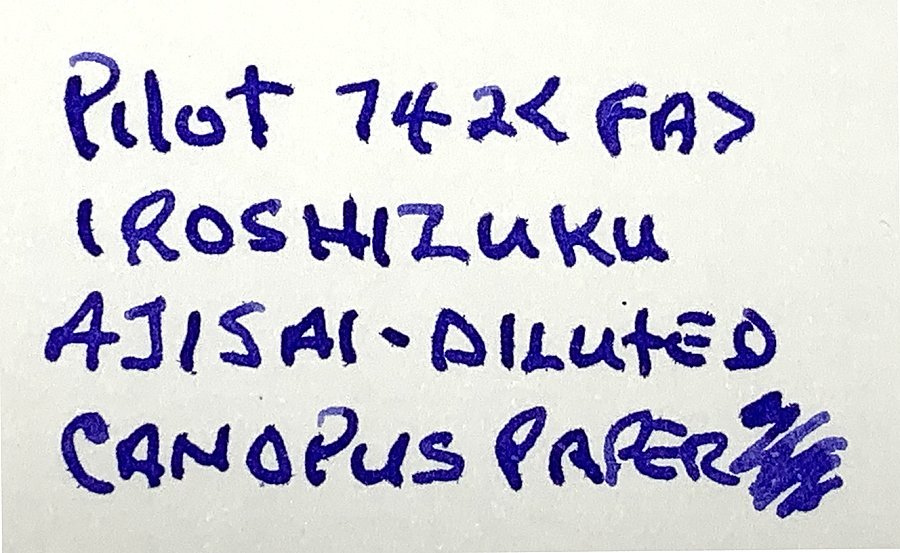 Pilot 742<FA>
IROSHIZUKU
AJISAI-DILUTED
CANOPUS PAPER